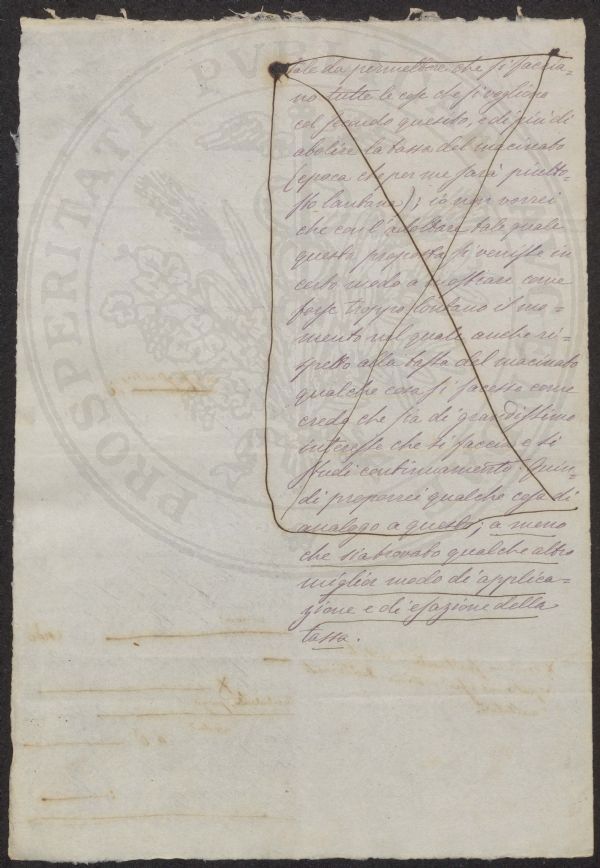 tale da permettere che si faccia-
no tutte le cose che si vogliono
col fondo questo, e di più di
abolire la tassa del macinato
(epoca che per me sarà piutto-
sto lontana); io non vorrei
che con l'adottare tale quale
questa proposta si venisse in
certo modo a mostrare come
forse troppo lontano il mo-
mento nel quale anche ri-
spetto alla tassa del macinato
qualche cosa si facesse come
credo che sia di grandissimo
interesse che si faccia e si
studi continuamente. Quin-
di proporrei qualche cosa di
analogo a questo; a meno
che sia trovato qualche altro
miglior modo di applica-
zione e di esazione della
tassa.
PROSPERITATI PVBLI